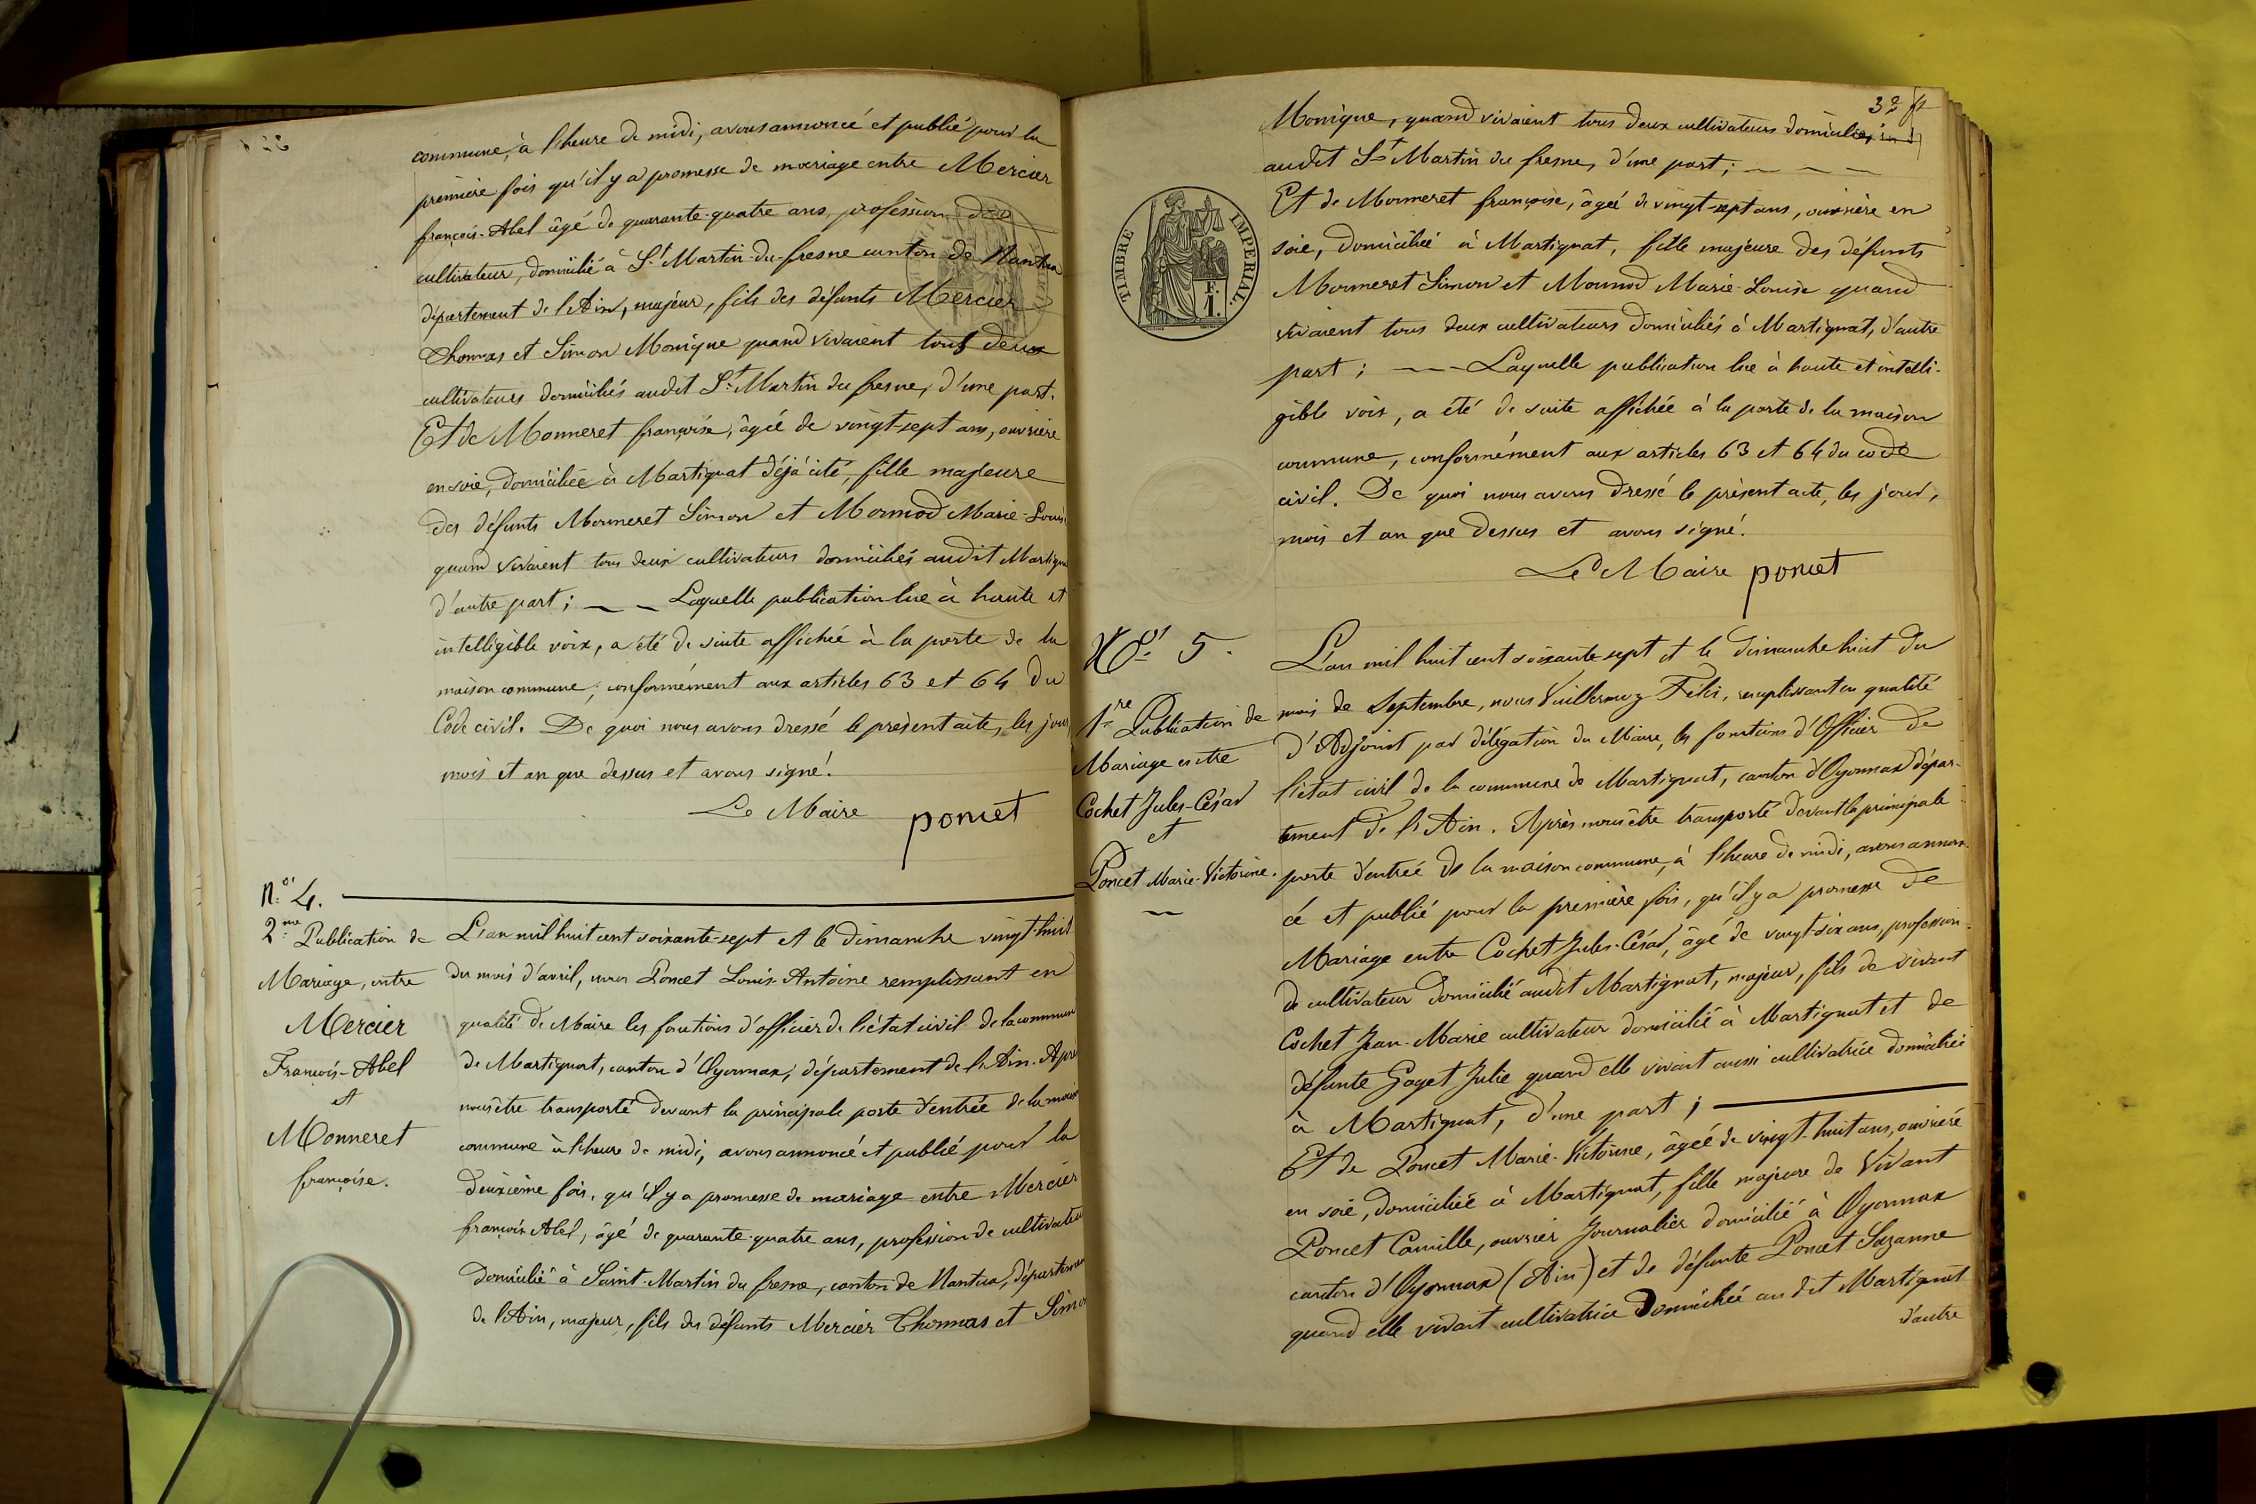 commune, à l'heure de midi, avons annoncé et publié pour la
première fois qu'il y a promesse de mariage entre Mercier
françois-Abel âgé de quarante-quatre ans, profession de
cultivateur, domicilié à St Martin-du-fresne canton de Nantua
département de l'Ain, majeur, fils des défunts Mercier
Thomas et Simon Monique quand vivaient tous deux
cultivateurs domiciliés audit St Martin du fresne, d'une part.
Et de Monneret françoise, âgée de vingt-sept ans, ouvrière
en soie, domiciliée à Martignat déjà cité, fille majeure
des défunts Monneret Simon et Monnod Marie-Louise
quand vivaient tous deux cultivateurs domiciliés audit Martignat
d'autre part; Laquelle publication lue à haute et
intelligible voix, a été de suite affichée à la porte de la
maison commune, conformément aux articles 63 et 64 du
Code civil. De quoi nous avons dressé le présent acte, les jour,
mois et an que dessus et avons signé.
Le Maire poncet
N° 4.
2me Publication de
Mariage, entre
Mercier
François-Abel
et
Monneret
françoise.
L'an mil huit cent soixante-sept et le dimanche vingt-huit
du mois d'avril, nous Poncet Louis-Antoine remplissant en
qualité de Maire les fonctions d'officier de l'état civil de la commune
de Martignat, canton d'Oyonnax, département de l'Ain. Après
nous être transporté devant la principale porte d'entrée de la maison
commune à l'heure de midi, avons annoncé et publié pour la
deuxième fois, qu'il y a promesse de mariage entre Mercier
françois Abel, âgé de quarante-quatre ans, profession de cultivateur
domicilié à Saint-Martin du fresne, canton de Nantua, département
de l'Ain, majeur, fils des défunts Mercier Thomas et Simon
32 ft
Monique, quand vivaient tous deux cultivateurs domiciliés
audit St Martin du fresne, d'une part;
Et de Monneret françoise, âgée de vingt-sept ans, ouvrière en
soie, domiciliée à Martignat, fille majeure des défunts
Monneret Simon et Monnod Marie-Louise quand
vivaient tous deux cultivateurs domiciliés à Martignat, d'autre
part; Laquelle publication lue à haute et intelli-
gible voix, a été de suite affichée à la porte de la maison
commune, conformément aux articles 63 et 64 du code
civil. De quoi nous avons dressé le présent acte, les jour,
mois et an que dessus et avons signé.
Le Maire poncet
TIMBRE IMPERIAL.
1 F.
No 5.
1re Publication de
Mariage entre
Cochet Jules-César
et
Poncet Marie-Victorine.
L'an mil huit cent soixante sept et le dimanche huit du
mois de Septembre, nous Vuillermoz Félix, remplissant en qualité
d'Adjoint par délégation du Maire, les fonctions d'Officier de
l'état civil de la commune de Martignat, canton d'Oyonnax dépar-
tement de l'Ain. Après nous être transporté devant la principale
porte d'entrée de la maison commune, à l'heure de midi, avons annon-
cé et publié pour la première fois, qu'il y a promesse de
Mariage entre Cochet Jules-César, âgé de vingt-six ans, profession
de cultivateur domicilié audit Martignat, majeur, fils de vivant
Cochet Jean-Marie cultivateur domicilié à Martignat et de
défunte Goyet Julie quand elle vivait aussi cultivatrice domiciliée
à Martignat, d'une part;
Et de Poncet Marie-Victorine, âgée de vingt-huit ans, ouvrière
en soie, domiciliée à Martignat, fille majeure de Vivant
Poncet Camille, ouvrier Journalier domicilié à Oyonnax
canton d'Oyonnax (Ain) et de défunte Poncet Suzanne
quand elle vivait cultivatrice domiciliée audit Martignat
d'autre